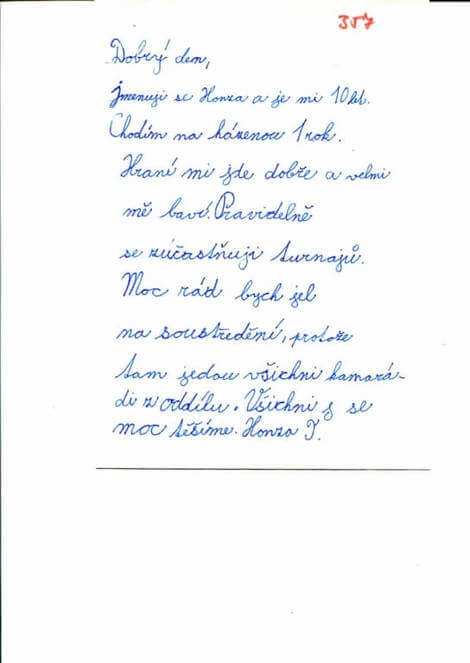 357
Dobrý den,
jmenuji se Honza a je mi 10 let.
Chodím na házenou 1 rok.
Hraní mi jde dobře a velmi
mě baví. Pravidelně
se zúčastňuji turnajů.
Moc rád bych jel
na soustředění, protože
tam jedou všichni kamará-
di z oddílu. Všichni se
moc těšíme. Honza J.